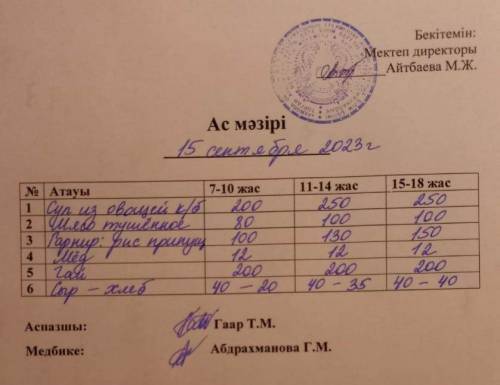 Бекітемін:
Мектеп директоры
Айтбаева М.Ж.
Ас мәзірі
15 сентября 2023 г
№ Атауы 7-10 жас 11-14 жас 15-18 жас
1 Суп из овощей к/б 200 250 250
2 Мясо тушёное 80 100 100
3 Гарнир: рис припущ 100 130 150
4 Мёд 12 12 12
5 Чай 200 200 200
6 Сыр – хлеб 40 – 20 40 – 35 40 – 40
Аспазшы: Гаар Т.М.
Медбике: Абдрахманова Г.М.